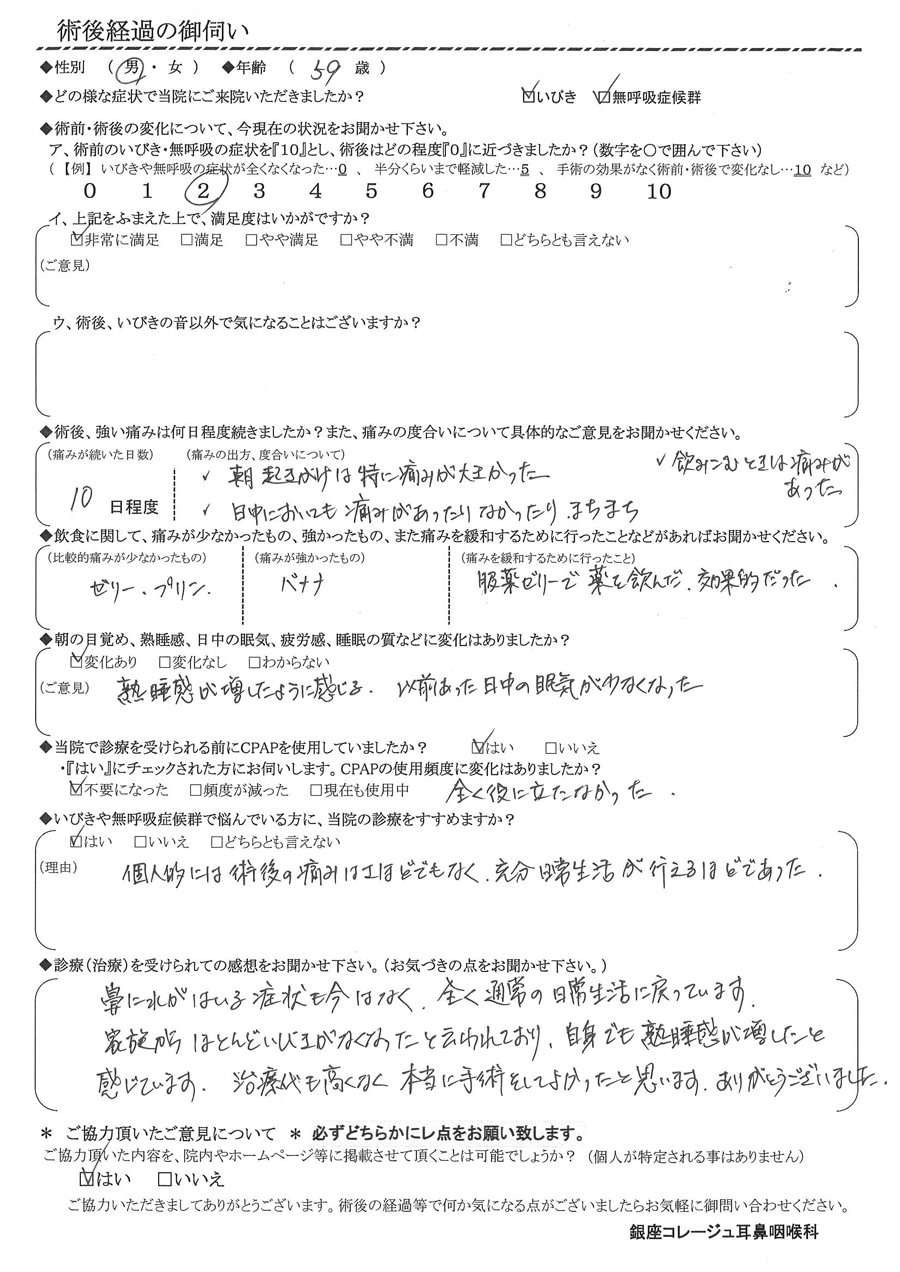 術後経過の御伺い
◆性別 （ 男 ・ 女 ） ◆年齢 （ 59 歳 ）
◆どの様な症状で当院にご来院いただきましたか？ ☑いびき ☑無呼吸症候群
◆術前・術後の変化について、今現在の状況をお聞かせ下さい。
ア、術前のいびき・無呼吸の症状を『10』とし、術後はどの程度『0』に近づきましたか？（数字を〇で囲んで下さい）
（ 【例】 いびきや無呼吸の症状が全くなくなった…0 、 半分くらいまで軽減した…5 、 手術の効果がなく術前・術後で変化なし…10 など）
0 1 2 3 4 5 6 7 8 9 10
イ、上記をふまえた上で、満足度はいかがですか？
☑非常に満足 □満足 □やや満足 □やや不満 □不満 □どちらとも言えない
（ご意見）
ウ、術後、いびきの音以外で気になることはございますか？
◆術後、強い痛みは何日程度続きましたか？また、痛みの度合いについて具体的なご意見をお聞かせください。
（痛みが続いた日数） （痛みの出方、度合いについて）
✓ 朝起きがけは特に痛みが大きかった ✓ 飲みこむときは痛みが
あった
10 日程度 ✓ 日中においても痛みがあったりなかったり、まちまち
◆飲食に関して、痛みが少なかったもの、強かったもの、また痛みを緩和するために行ったことなどがあればお聞かせください。
（比較的痛みが少なかったもの） （痛みが強かったもの） （痛みを緩和するために行ったこと）
ゼリー、プリン. バナナ 服薬ゼリーで薬を飲んだ、効果的だった.
◆朝の目覚め、熟睡感、日中の眠気、疲労感、睡眠の質などに変化はありましたか？
☑変化あり □変化なし □わからない
（ご意見） 熟睡感が増したように感じる. 以前あった日中の眠気が少なくなった
◆当院で診療を受けられる前にCPAPを使用していましたか？ ☑はい □いいえ
・『はい』にチェックされた方にお伺いします。CPAPの使用頻度に変化はありましたか？
☑不要になった □頻度が減った □現在も使用中 全く役に立たなかった.
◆いびきや無呼吸症候群で悩んでいる方に、当院の診療をすすめますか？
☑はい □いいえ □どちらとも言えない
（理由） 個人的には術後の痛みはさほどでもなく、充分日常生活が行えるほどであった.
◆診療（治療）を受けられての感想をお聞かせ下さい。（お気づきの点をお聞かせ下さい。）
鼻に水がはいる症状も今はなく、全く通常の日常生活に戻っています.
家族からほとんどいびきがなくなったと云われており、自身でも熟睡感が増したと
感じています. 治療代も高くなく本当に手術をしてよかったと思います. ありがとうございました.
＊ ご協力頂いたご意見について ＊ 必ずどちらかにレ点をお願い致します。
ご協力頂いた内容を、院内やホームページ等に掲載させて頂くことは可能でしょうか？ （個人が特定される事はありません）
☑はい □いいえ
ご協力いただきましてありがとうございます。術後の経過等で何か気になる点がございましたらお気軽に御問い合わせください。
銀座コレージュ耳鼻咽喉科